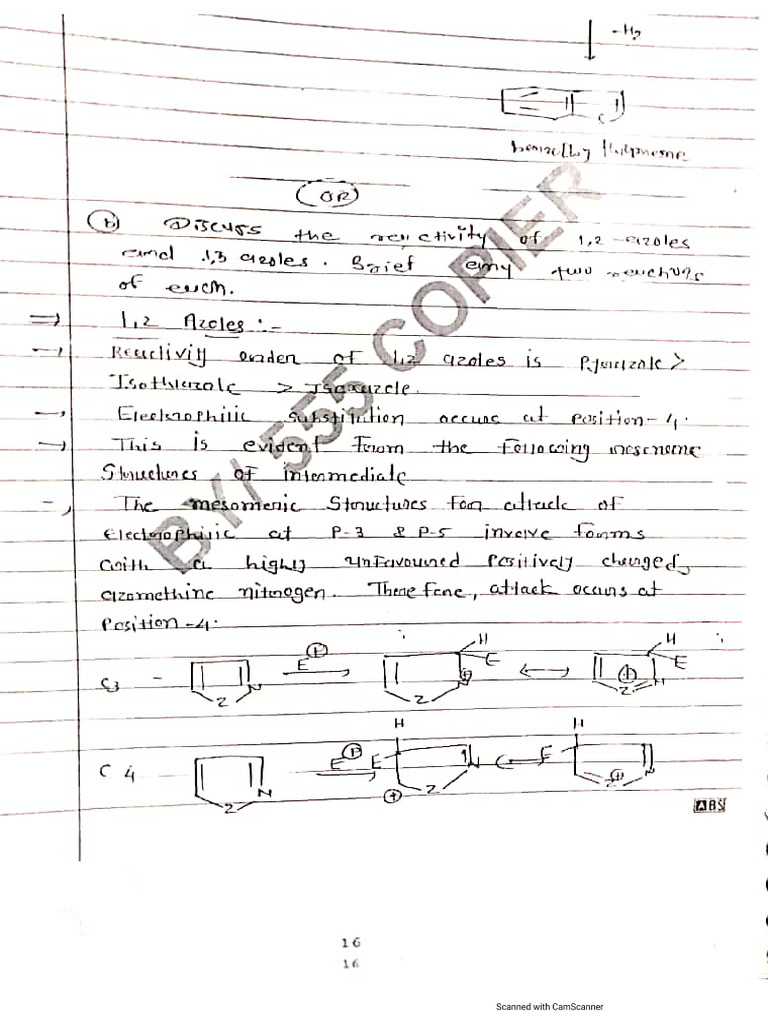 -H2
(OR)
(b) Discuss the reactivity of 1,2-azoles
and 1,3 azoles. Brief any two reactions
of each.
=> 1,2 Azoles :-
→ Reactivity order of 1,2 azoles is Pyrazole >
Isothiazole > Isoxazole.
→ Electrophilic substitution occurs at position-4.
→ This is evident from the following mesomeric
structures of intermediate
→ The mesomeric structures for attack of
electrophilic at P-3 & P-5 involve forms
with a highly unfavoured positively charged,
azomethine nitrogen. Therefore, attack occurs at
position-4.
C3 - Z N E⊕ H E Z ⊕ H E ⊕ Z N
C4 Z N E⊕ H E N Z ⊕ H E N ⊕ Z
BY/ 555 COPIER
ABS
16
16
Scanned with CamScanner